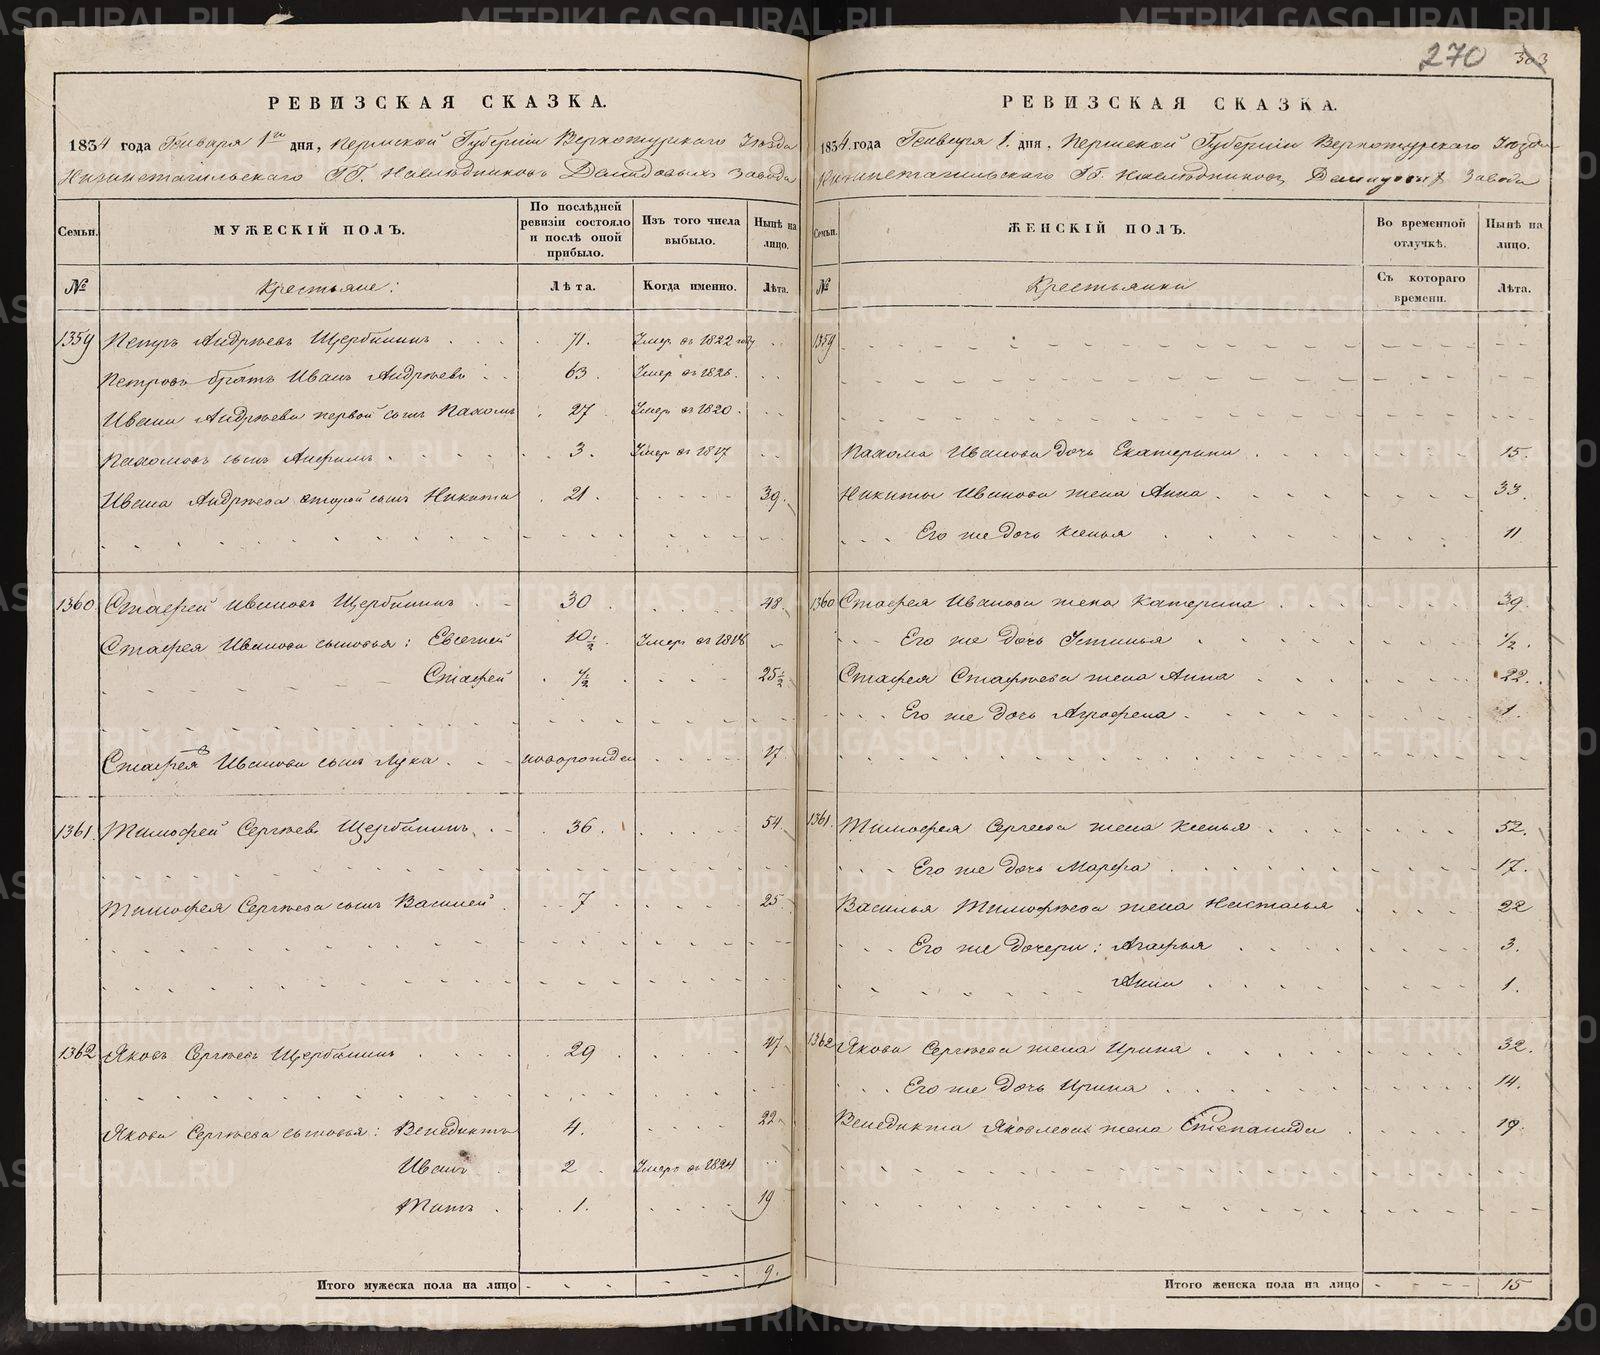 270 303
РЕВИЗСКАЯ СКАЗКА.
1834 года Генваря 1го дня, Пермской Губернiи Верхотурскаго Уезда
Нижнетагильскаго ГГ. Наследниковъ Демидовыхъ завода
Семьи. МУЖЕСКIЙ ПОЛЪ. По послѣдней ревизiи состояло и послѣ оной прибыло. Изъ того числа выбыло. Нынѣ на лицо.
№ Крестьяне: Лѣта. Когда именно. Лѣта.
1359 Петръ Андрѣевъ Щербининъ 71. Умер въ 1822 году
Петровъ братъ Иванъ Андрѣевъ 63. Умер въ 1826.
Ивана Андрѣева первой сынъ Пахомъ 27 Умеръ въ 1820.
Пахомовъ сынъ Анфимъ 3. Умер въ 1817
Ивана Андрѣева второй сынъ Никита 21. 39.
1360 Стафей Ивановъ Щербининъ 30 48.
Стафея Иванова сыновья: Евсегней 10½ Умеръ въ 1818
Стафей ½ 25½
Стафея Иванова сынъ Лука новорожден 17
1361. Тимофей Сергѣевъ Щербининъ 36. 54.
Тимофея Сергѣева сынъ Василей 7 25
1362 Яковъ Сергѣевъ Щербининъ 29 47
Якова Сергѣева сыновья: Венедиктъ 4. 22
Иванъ 2 Умеръ въ 1824
Титъ 1. 19
Итого мужеска пола на лицо 9.
РЕВИЗСКАЯ СКАЗКА.
1834. года Генваря 1. дня, Пермской Губернiи Верхотурскаго Уезда
Нижнетагильскаго ГГ. Наследниковъ Демидовыхъ завода
Семьи. ЖЕНСКIЙ ПОЛЪ. Во временной отлучкѣ. Нынѣ на лицо.
№ Крестьянки Съ котораго времени. Лѣта.
1359
Пахома Иванова дочь Екатерина 15.
Никиты Иванова жена Анна 33.
Его же дочь Ксенья 11
1360 Стафея Иванова жена Катерина 39.
Его же дочь Устинья ½.
Стафея Стафѣева жена Анна 22.
Его же дочь Агрофена 1.
1361. Тимофея Сергеева жена Ксенья 52.
Его же дочь Марфа 17.
Василья Тимофѣева жена Настасья 22
Его же дочери: Агафья 3.
Анна 1.
1362 Якова Сергѣева жена Ирина 32.
Его же дочь Ирина 14.
Венедикта Яковлева жена Степанида 19.
Итого женска пола на лицо 15
METRIKI.GASO-URAL.RU